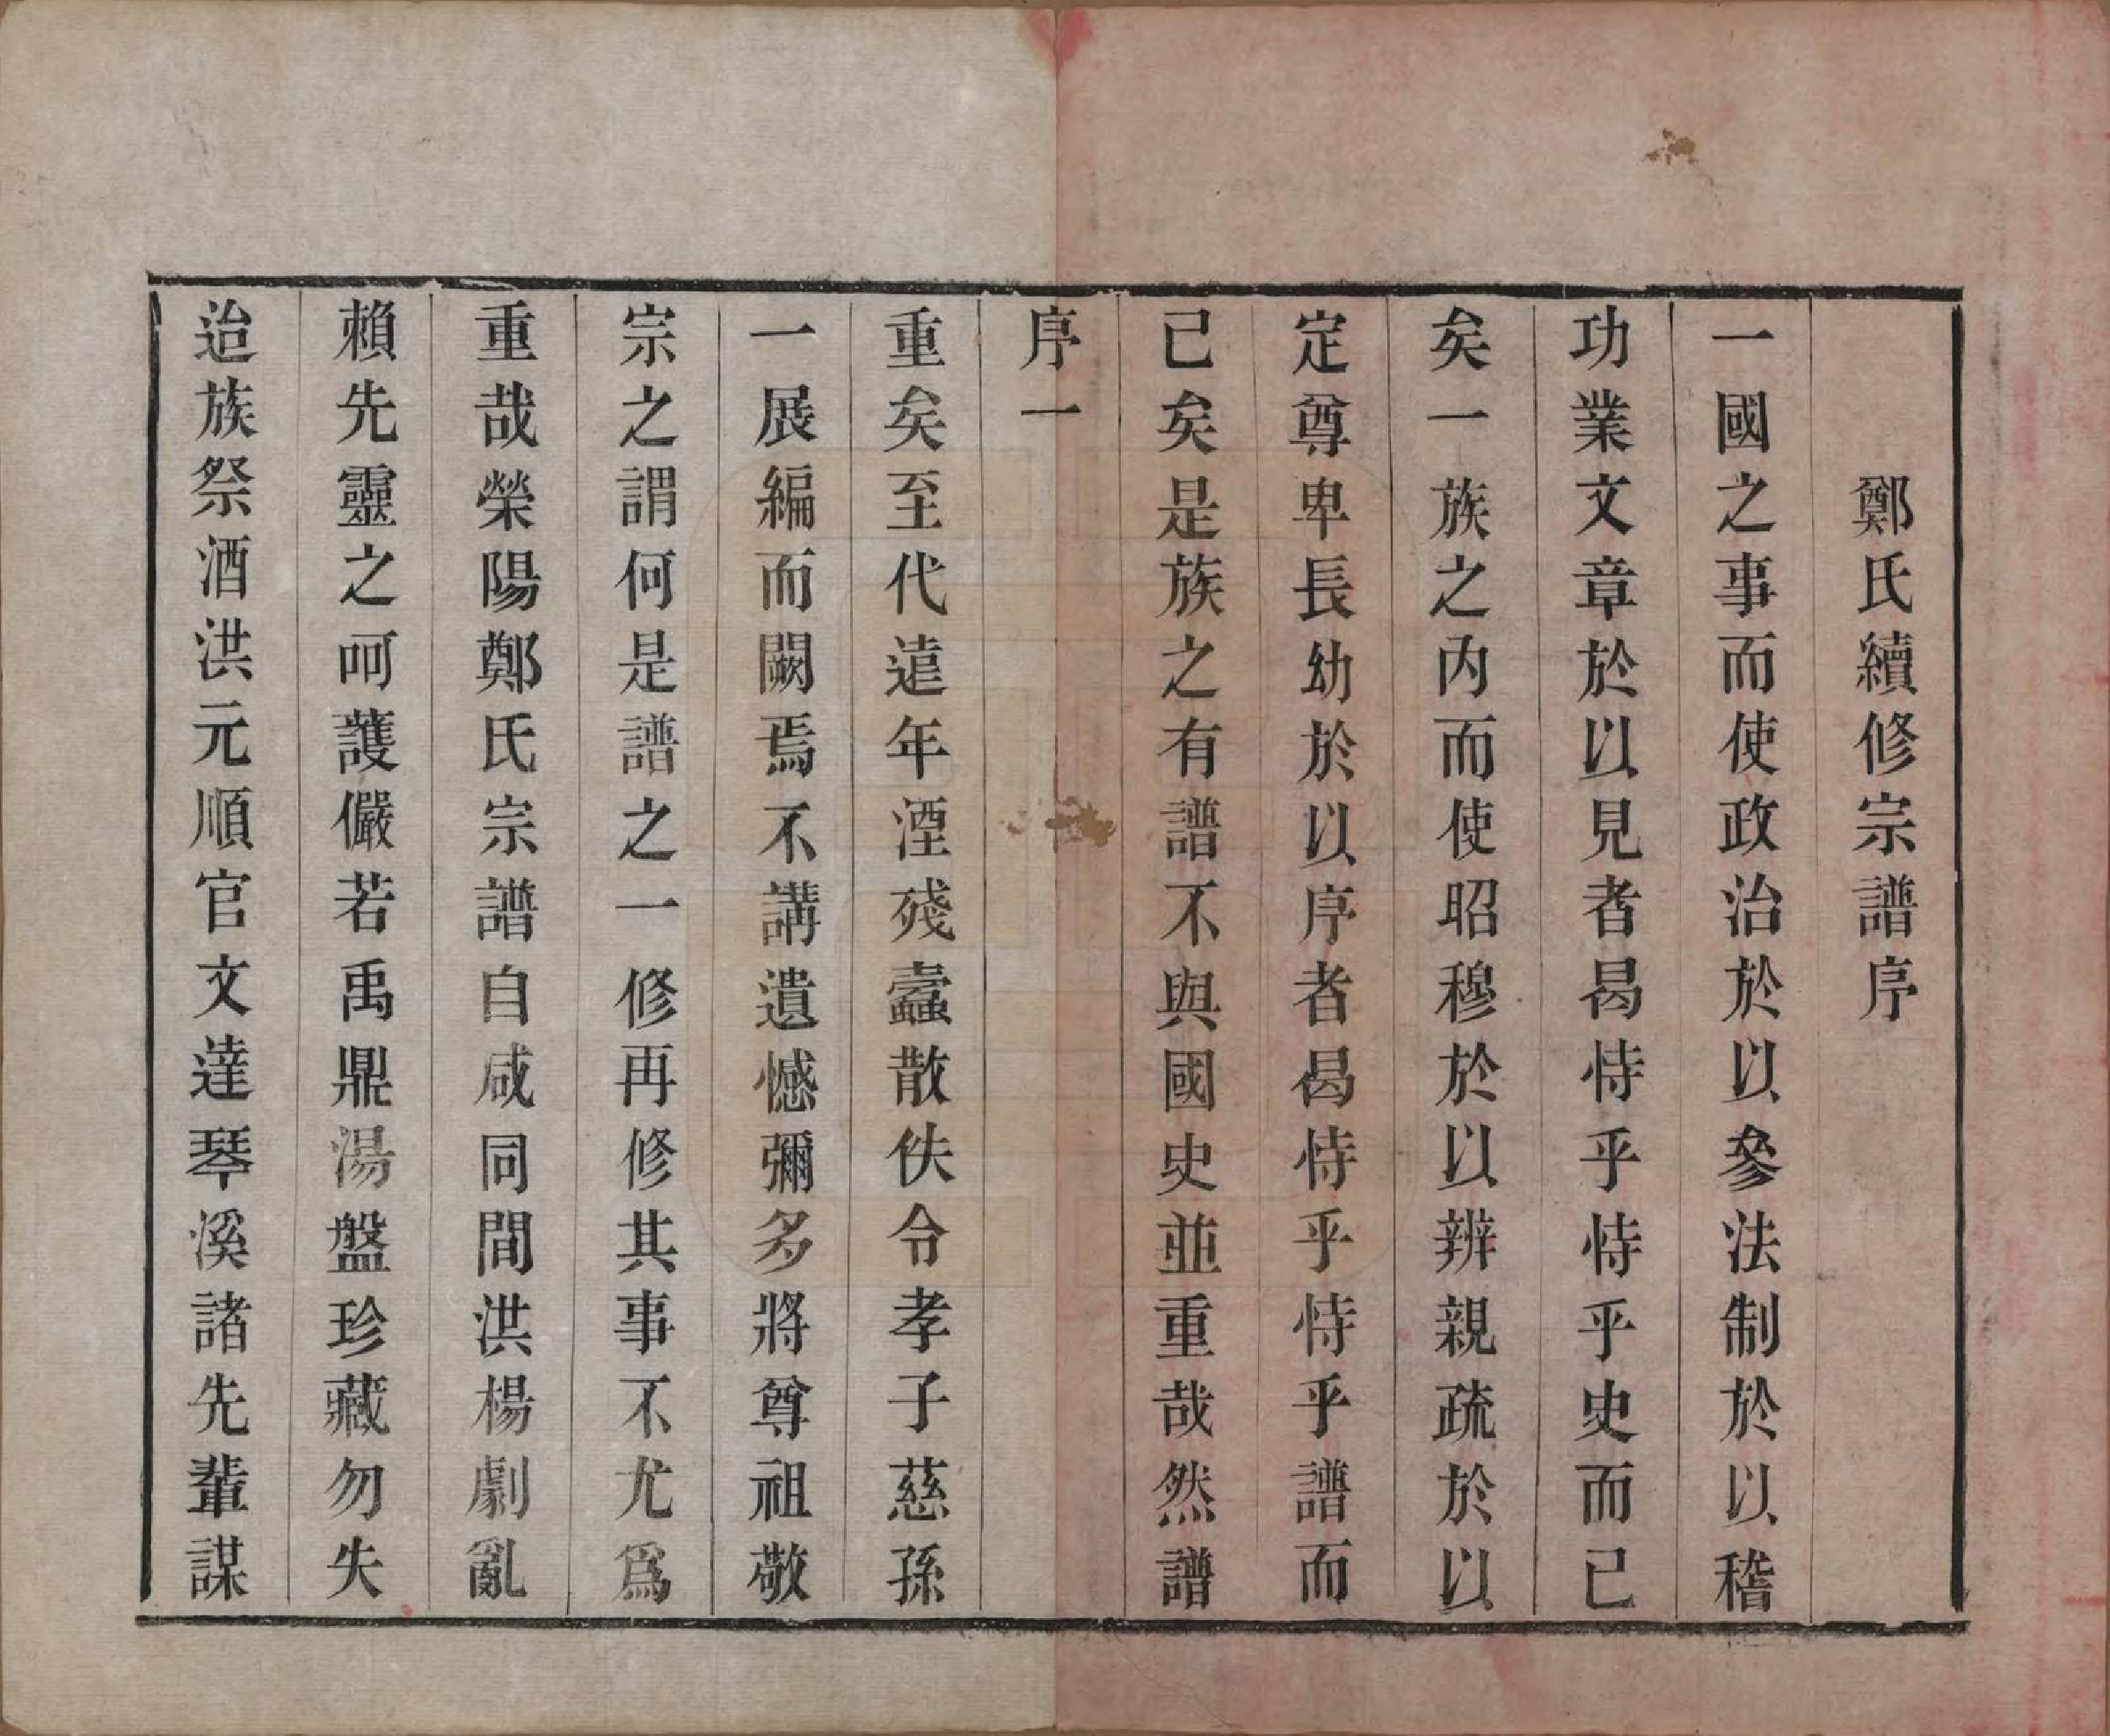 鄭氏續修宗譜序
一國之事而使政治於以參法制於以稽
功業文章於以見者曷恃乎恃乎史而已
矣一族之內而使昭穆於以辨親疏於以
定尊卑長幼於以序者曷恃乎恃乎譜而
已矣是族之有譜不與國史並重哉然譜
序一
重矣至代遠年湮殘蠹散佚令孝子慈孫
一展編而闕焉不講遺憾彌多將尊祖敬
宗之謂何是譜之一修再修其事不尤爲
重哉榮陽鄭氏宗譜自咸同間洪楊劇亂
賴先靈之呵護儼若禹鼎湯盤珍藏勿失
迨族祭酒洪元順官文達琴溪諸先輩謀